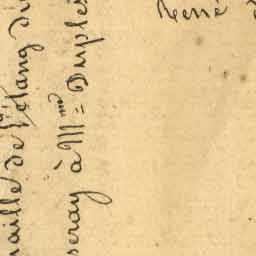 aille de l'étang du
seray à M.me Duples